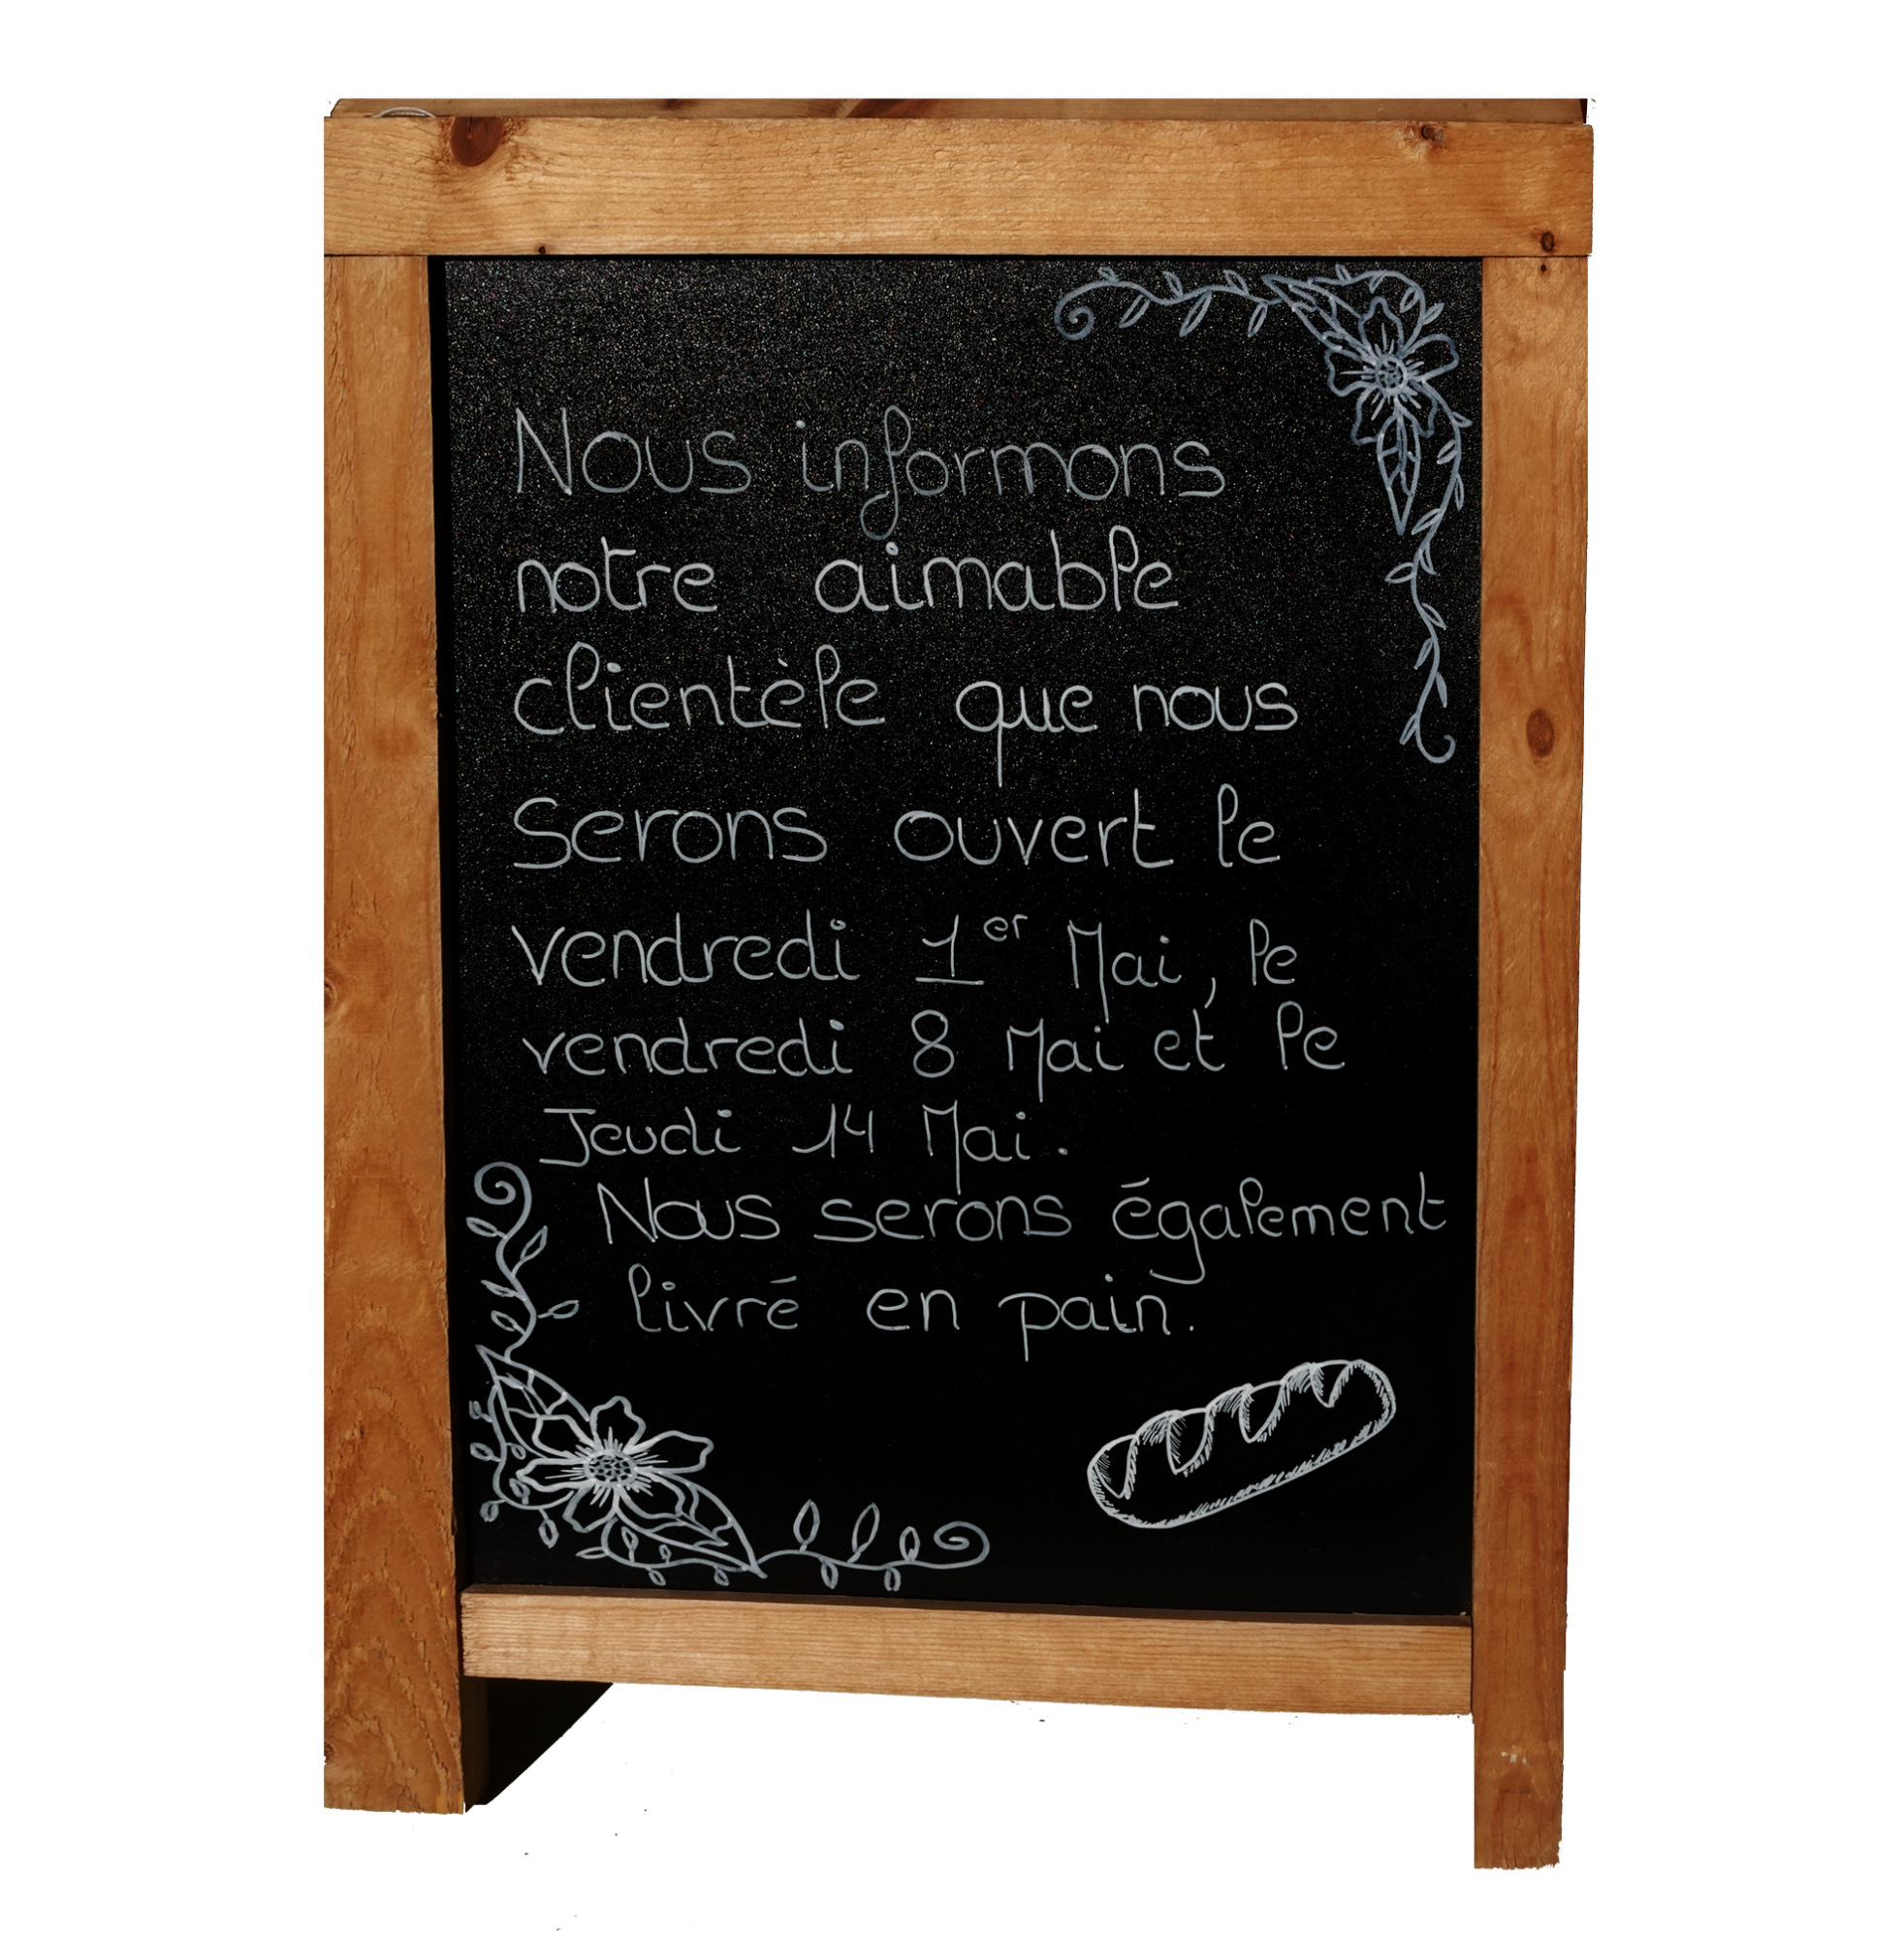 Nous informons
notre aimable
clientèle que nous
serons ouvert le
vendredi 1er Mai, le
vendredi 8 Mai et le
Jeudi 14 Mai.
Nous serons également
livré en pain.